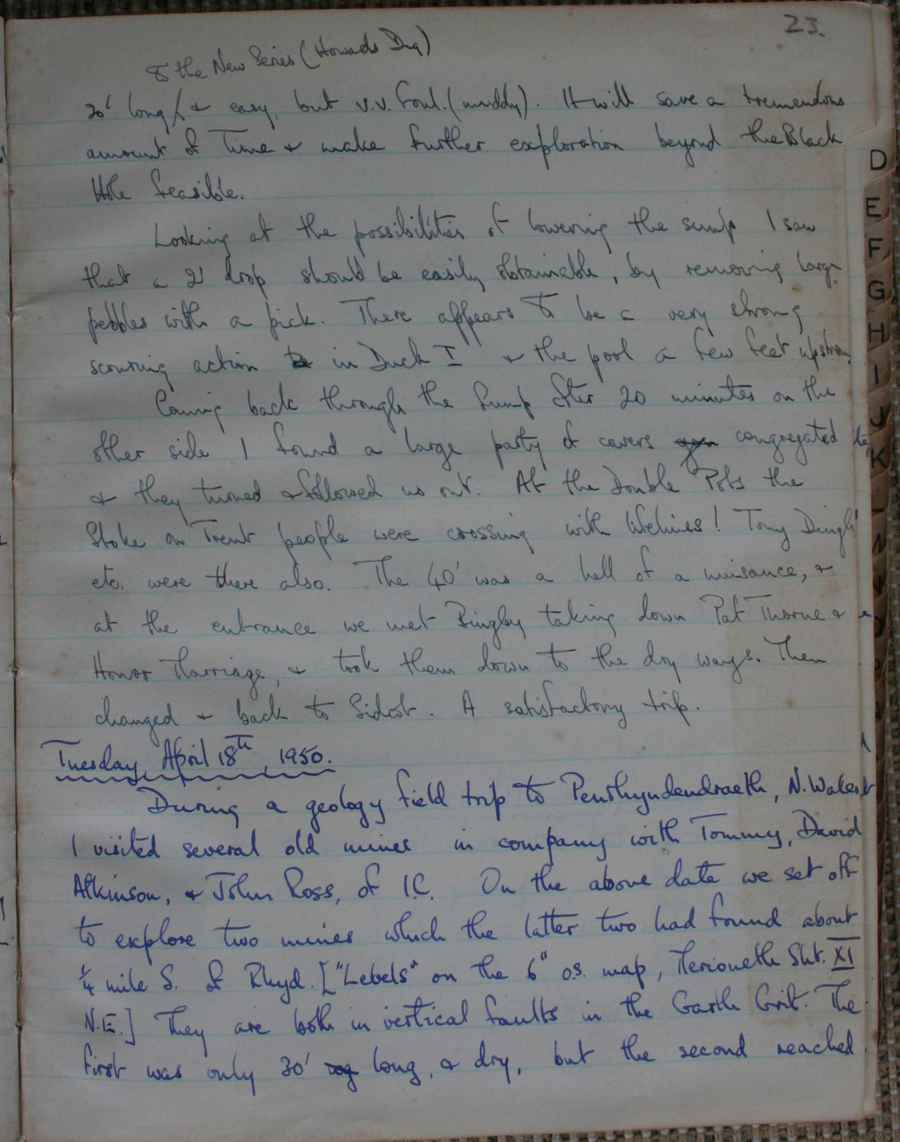 23.
& the New Series (Howards Dig)
30' long/& easy, but v.v. foul. (muddy). It will save a tremendous
amount of Time & make further exploration beyond the Black
Hole feasible.
Looking at the possibilities of lowering the sump I saw
that a 2' drop should be easily obtainable, by removing large
pebbles with a pick. There appears to be a very strong
scouring action in Duck I & the pool a few feet upstream
Coming back through the Sump after 20 minutes on the
other side I found a large party of cavers congregated
& they turned & followed us out. At the Double Pots the
Stoke on Trent people were crossing with lifelines! Tony Dingle
etc. were there also. The 40' was a hell of a nuisance, &
at the entrance we met Bingley taking down Pat Thorne &
Honor Marriage, & took them down to the dry ways. Then
changed & back to Sidcot. A satisfactory trip.
Tuesday, April 18th, 1950.
During a geology field trip to Penrhyndendraeth, N. Wales
I visited several old mines in company with Tommy, David
Atkinson, & John Ross, of I.C. On the above date we set off
to explore two mines which the latter two had found about
1/4 mile S. of Rhyd. ["Lebels" on the 6" o.s. map, Merioneth Sht. XI
N.E.] They are both in vertical faults in the Garth Grit. The
first was only 30' long, & dry, but the second reached
D
E
F
G
H
I
J
K